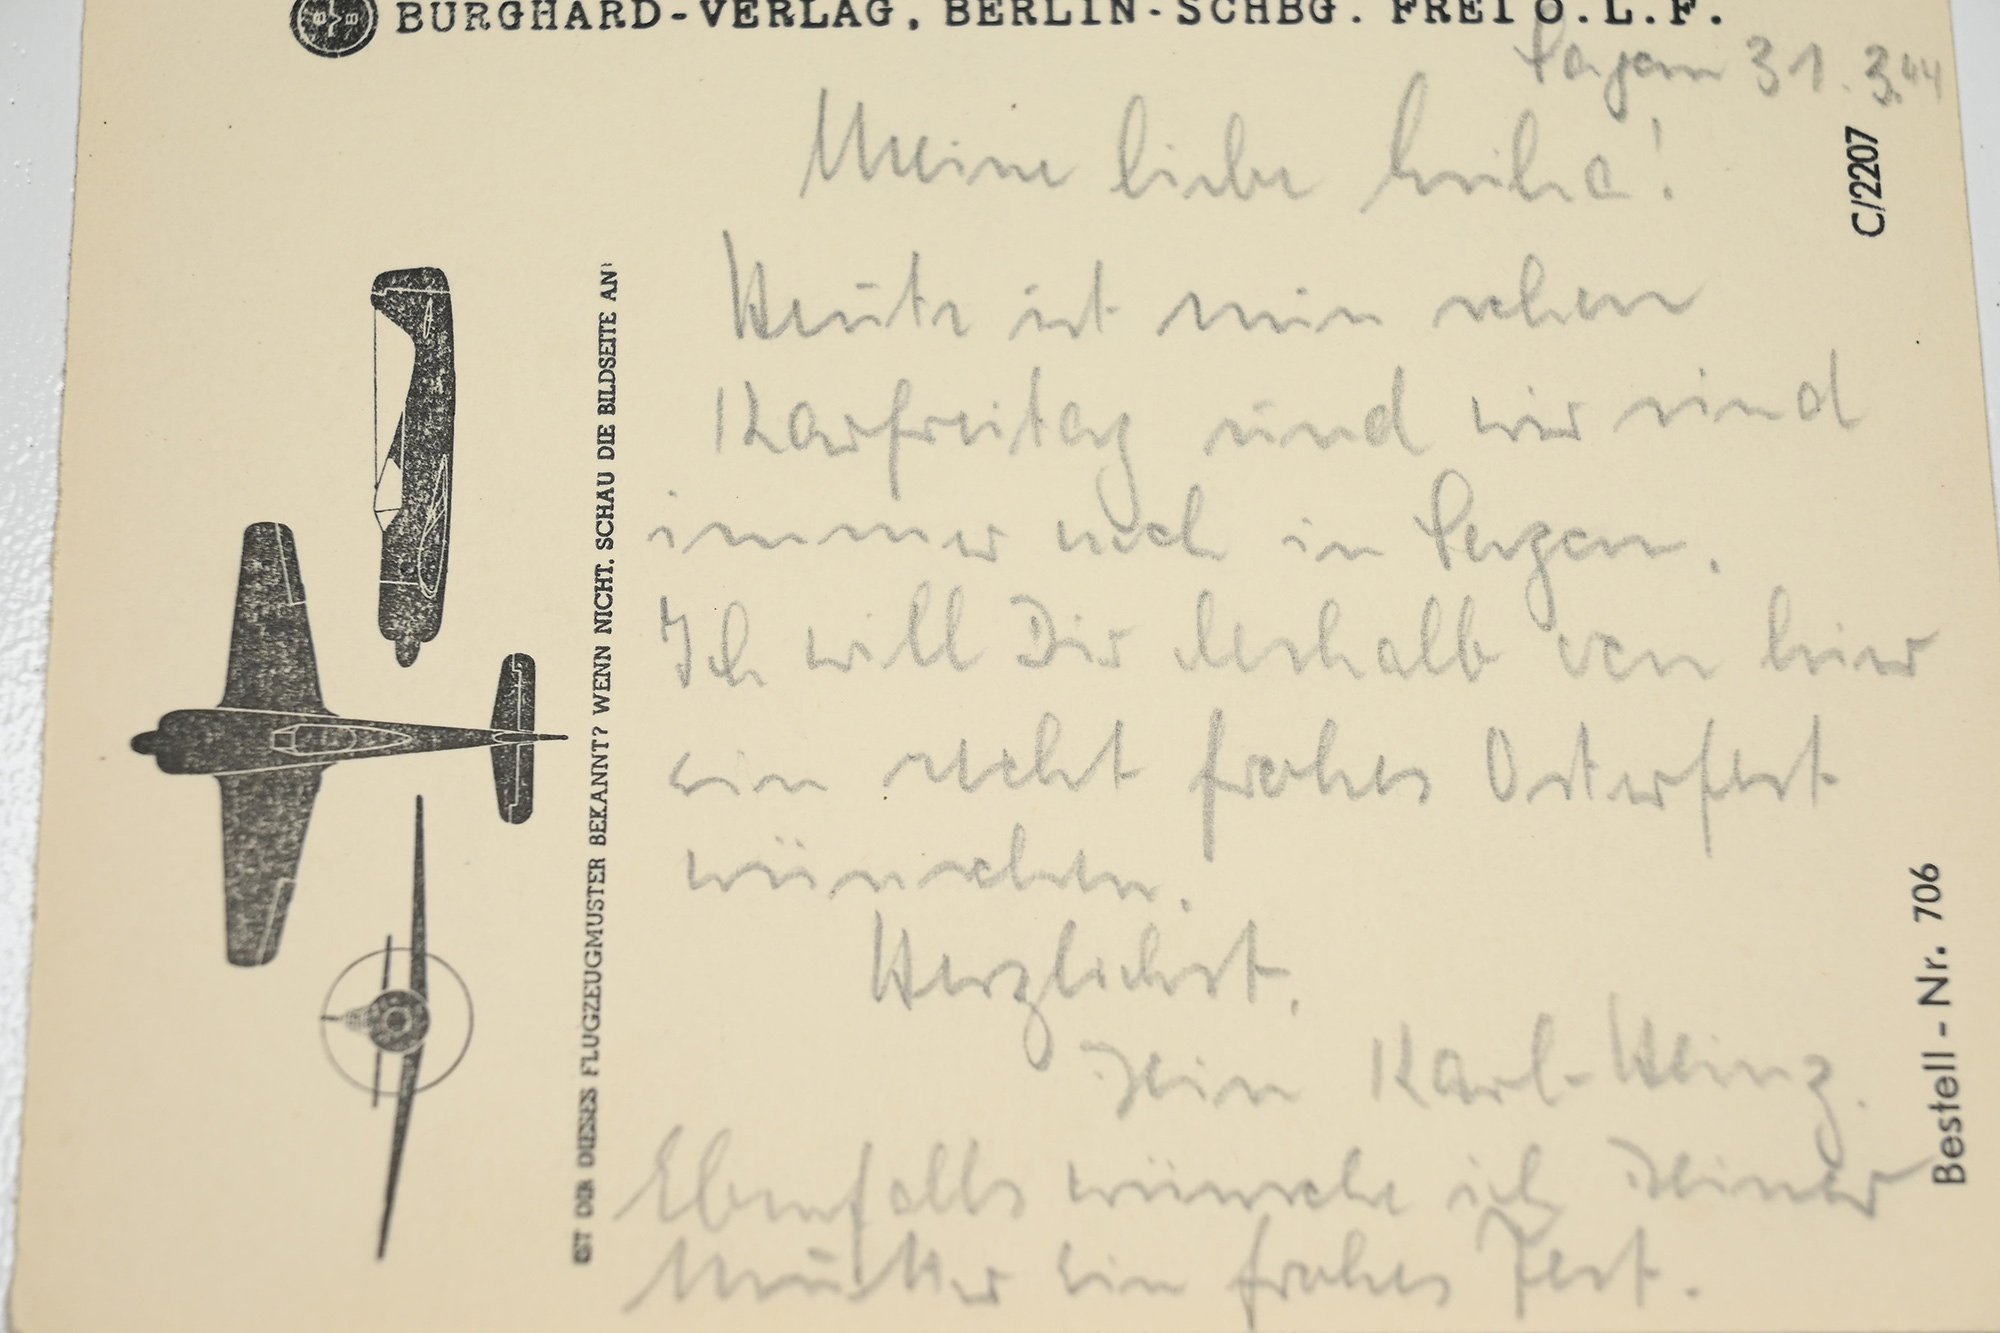 BURGHARD-VERLAG, BERLIN-SCHBG. FREI O.L.F.
31.3.44
C/2207
Meine liebe
Heute ist nun schon
Karfreitag und wir sind
immer noch in
Ich will Dir deshalb von hier
ein recht frohes Osterfest
wünschen.
Herzlichst,
Dein Karl-Heinz.
Ebenfalls wünsche ich Deiner
Mutter ein frohes Fest.
IST DIR DIESES FLUGZEUGMUSTER BEKANNT? WENN NICHT, SCHAU DIE BILDSEITE AN!
Bestell-Nr. 706